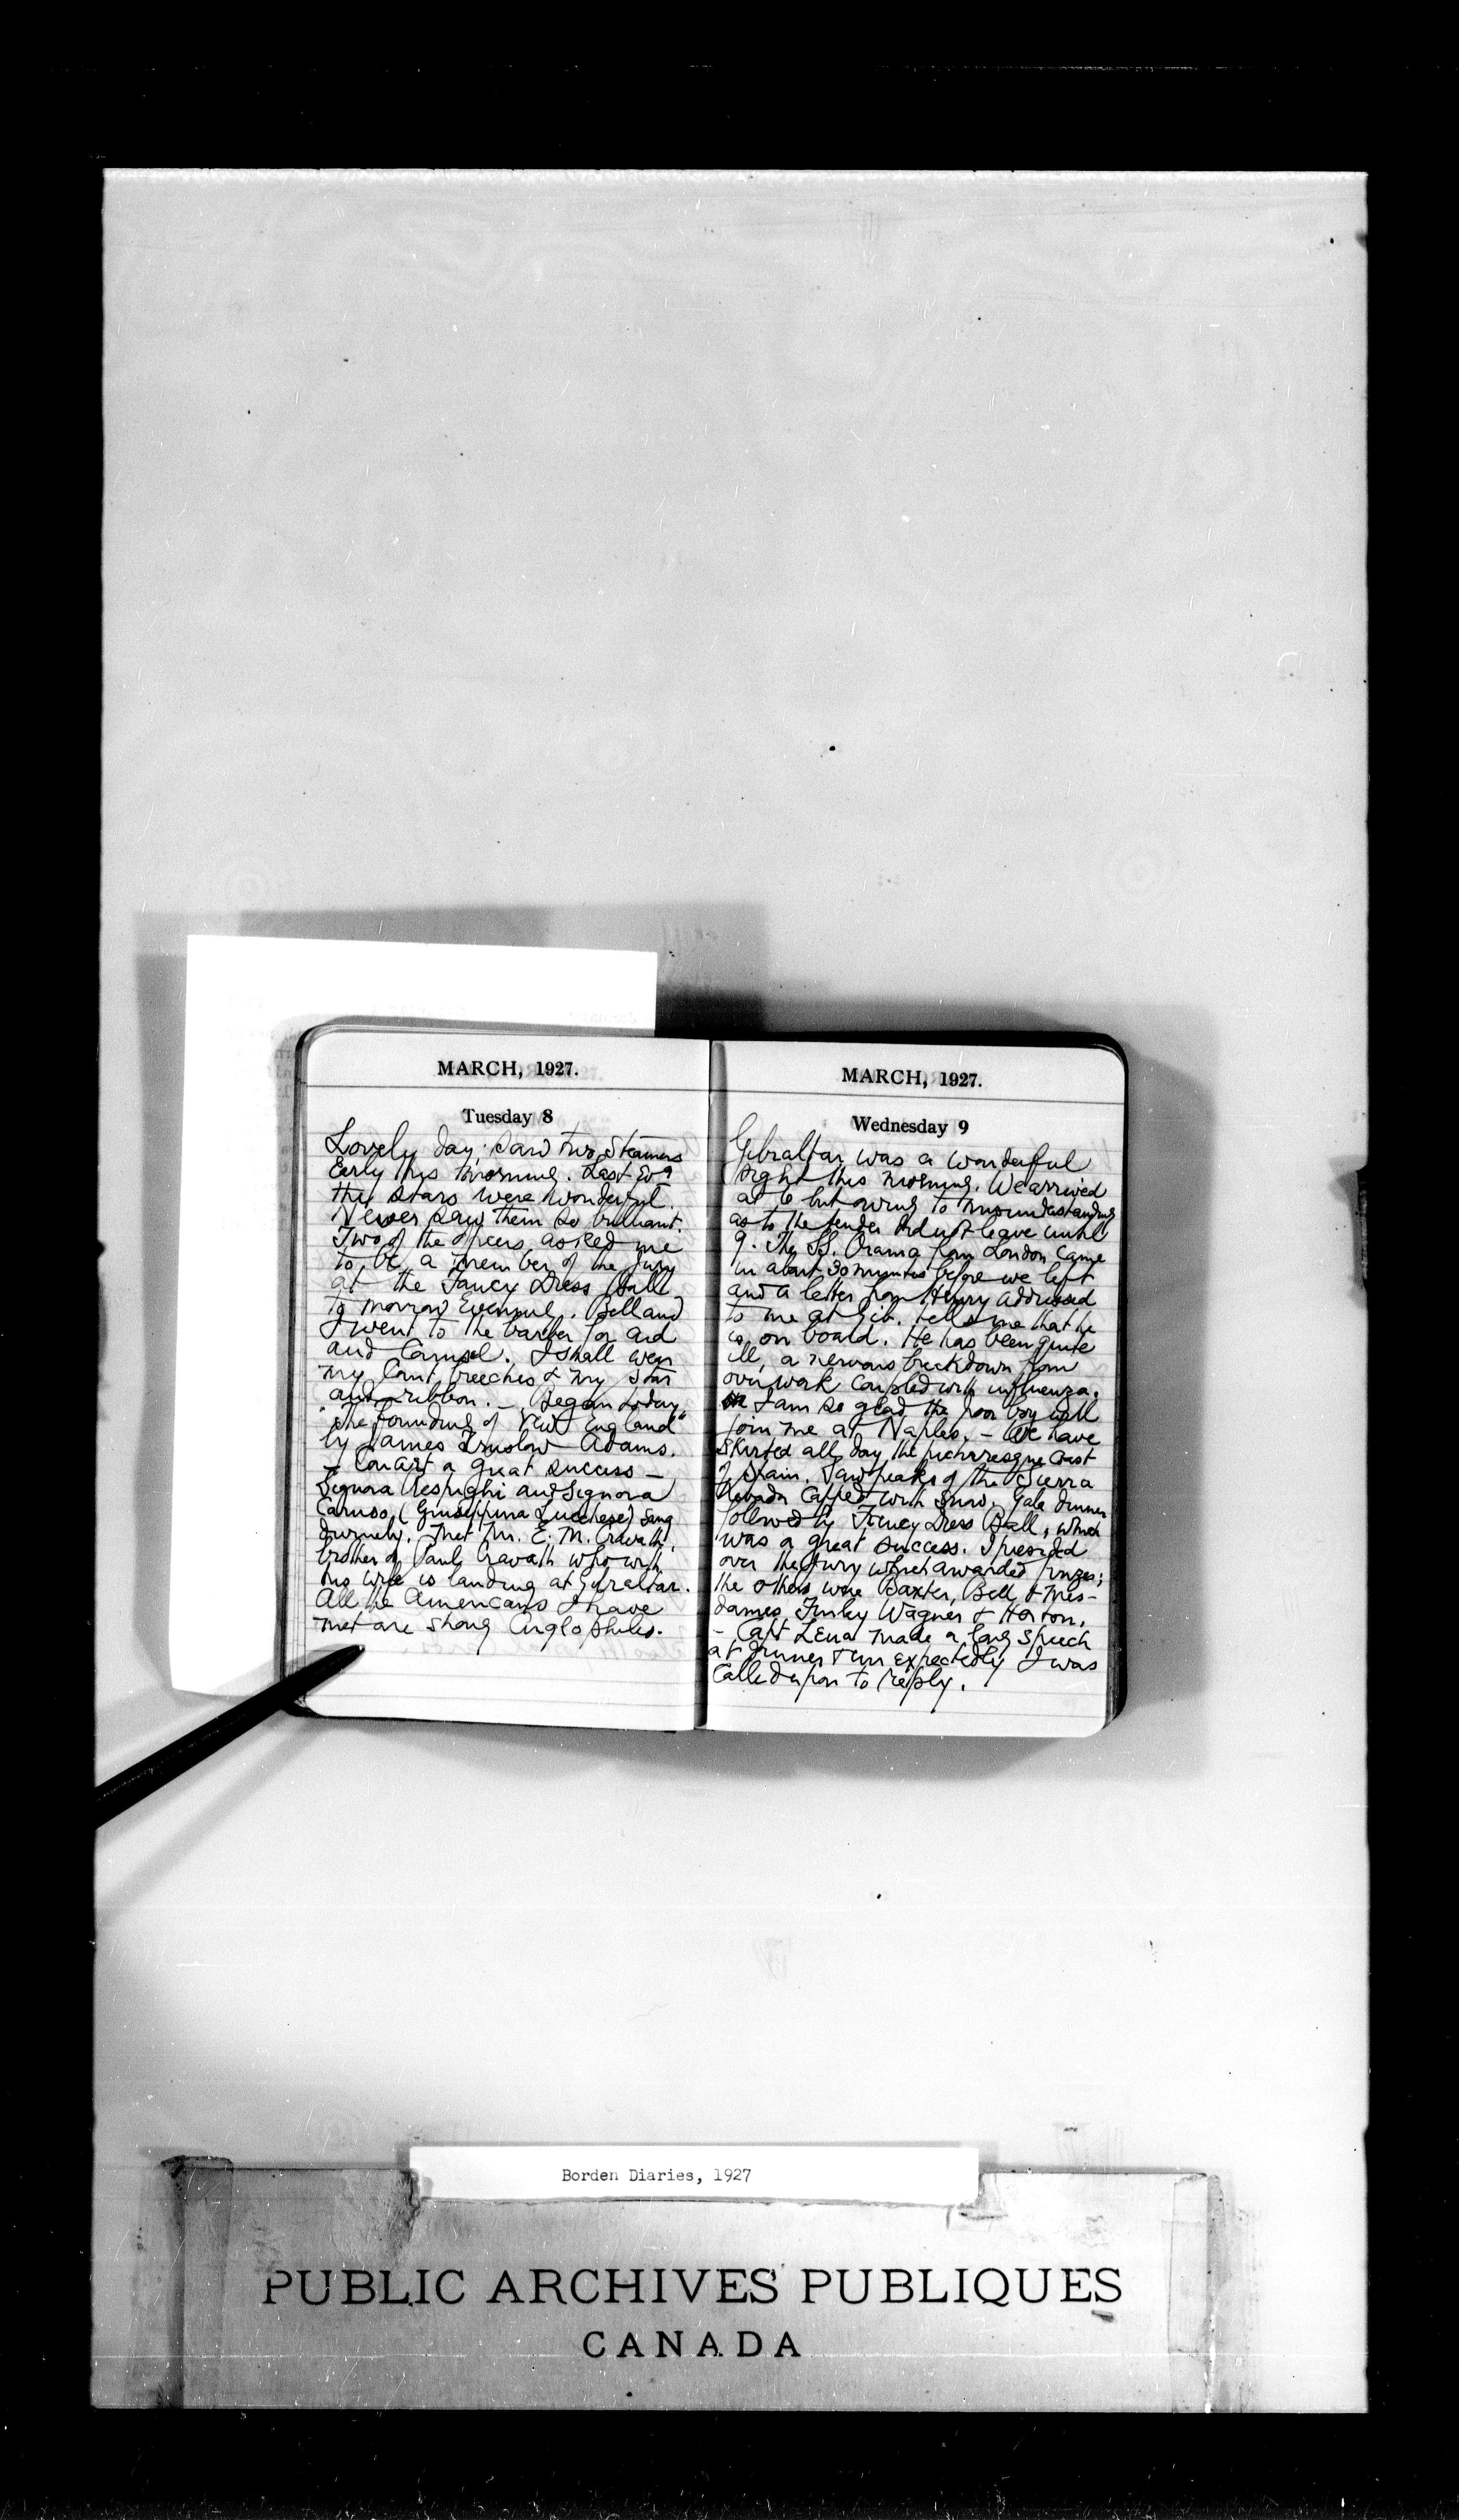 MARCH, 1927.
Tuesday 8
Lovely day; Saw two Steamers
Early this morning. Last Evg
the stars were wonderful.
Never saw them so brilliant.
Two of the officers asked me
to be a member of the Jury
at the Fancy Dress Ball
to morrow Evening. Bell and
I went to the barber for aid
and Counsel. I shall wear
my Court breeches & my Star
and ribbon. – Began today
"The founding of New England"
by James Truslow Adams.
– Concert a great success –
Signora Respighi and Signora
Caruso (Giuseppina Lucchese) Sang
divinely. Met Mr. E. M. Cravath,
brother of Paul Cravath who with
his wife is landing at Gibraltar.
All the Americans I have
met are strong Anglophiles.
MARCH, 1927.
Wednesday 9
Gibraltar was a wonderful
sight this morning. We arrived
at 6 but owing to misunderstanding
as to the tender did not leave until
9. The SS. Orama from London came
in about 30 minutes before we left
and a letter from Henry addressed
to me at Gib. tells me that he
is on board. He has been quite
ill, a nervous breakdown from
over work coupled with influenza.
I am so glad the poor boy will
join me at Naples. – We have
Skirted all day the picturesque Coast
of Spain. Saw peaks of the Sierra
Nevada Capped with snow. Gala dinner
followed by Fancy Dress Ball, which
was a great success. I presided
over the Jury which awarded prizes;
the others were Baxter, Bell & Mes-
dames, Wagner & Horton.
– Capt Lena made a long speech
at dinner & unexpectedly I was
Called upon to reply.
Borden Diaries, 1927
PUBLIC ARCHIVES PUBLIQUES
CANADA